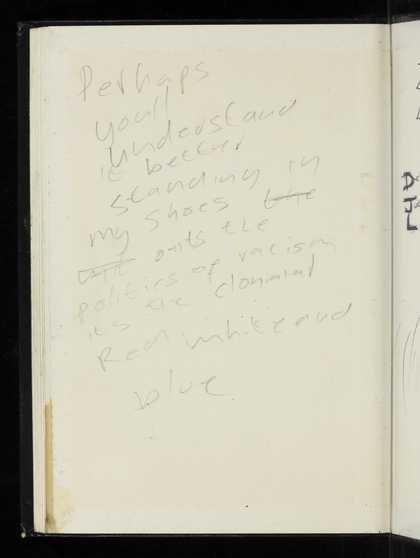 Perhaps
you'll
understand
it better
standing in
my shoes
outs the
politics of racism
its the
Red white and
blue